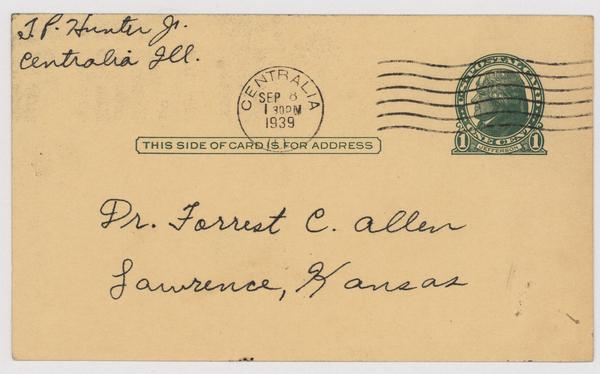 T. P. Hunter Jr.
Centralia Ill.
CENTRALIA
SEP 8
1 30PM
1939
ILL.
U.S. POSTAL CARD
ONE CENT
1 JEFFERSON 1
THIS SIDE OF CARD IS FOR ADDRESS
Dr. Forrest C. Allen
Lawrence, Kansas